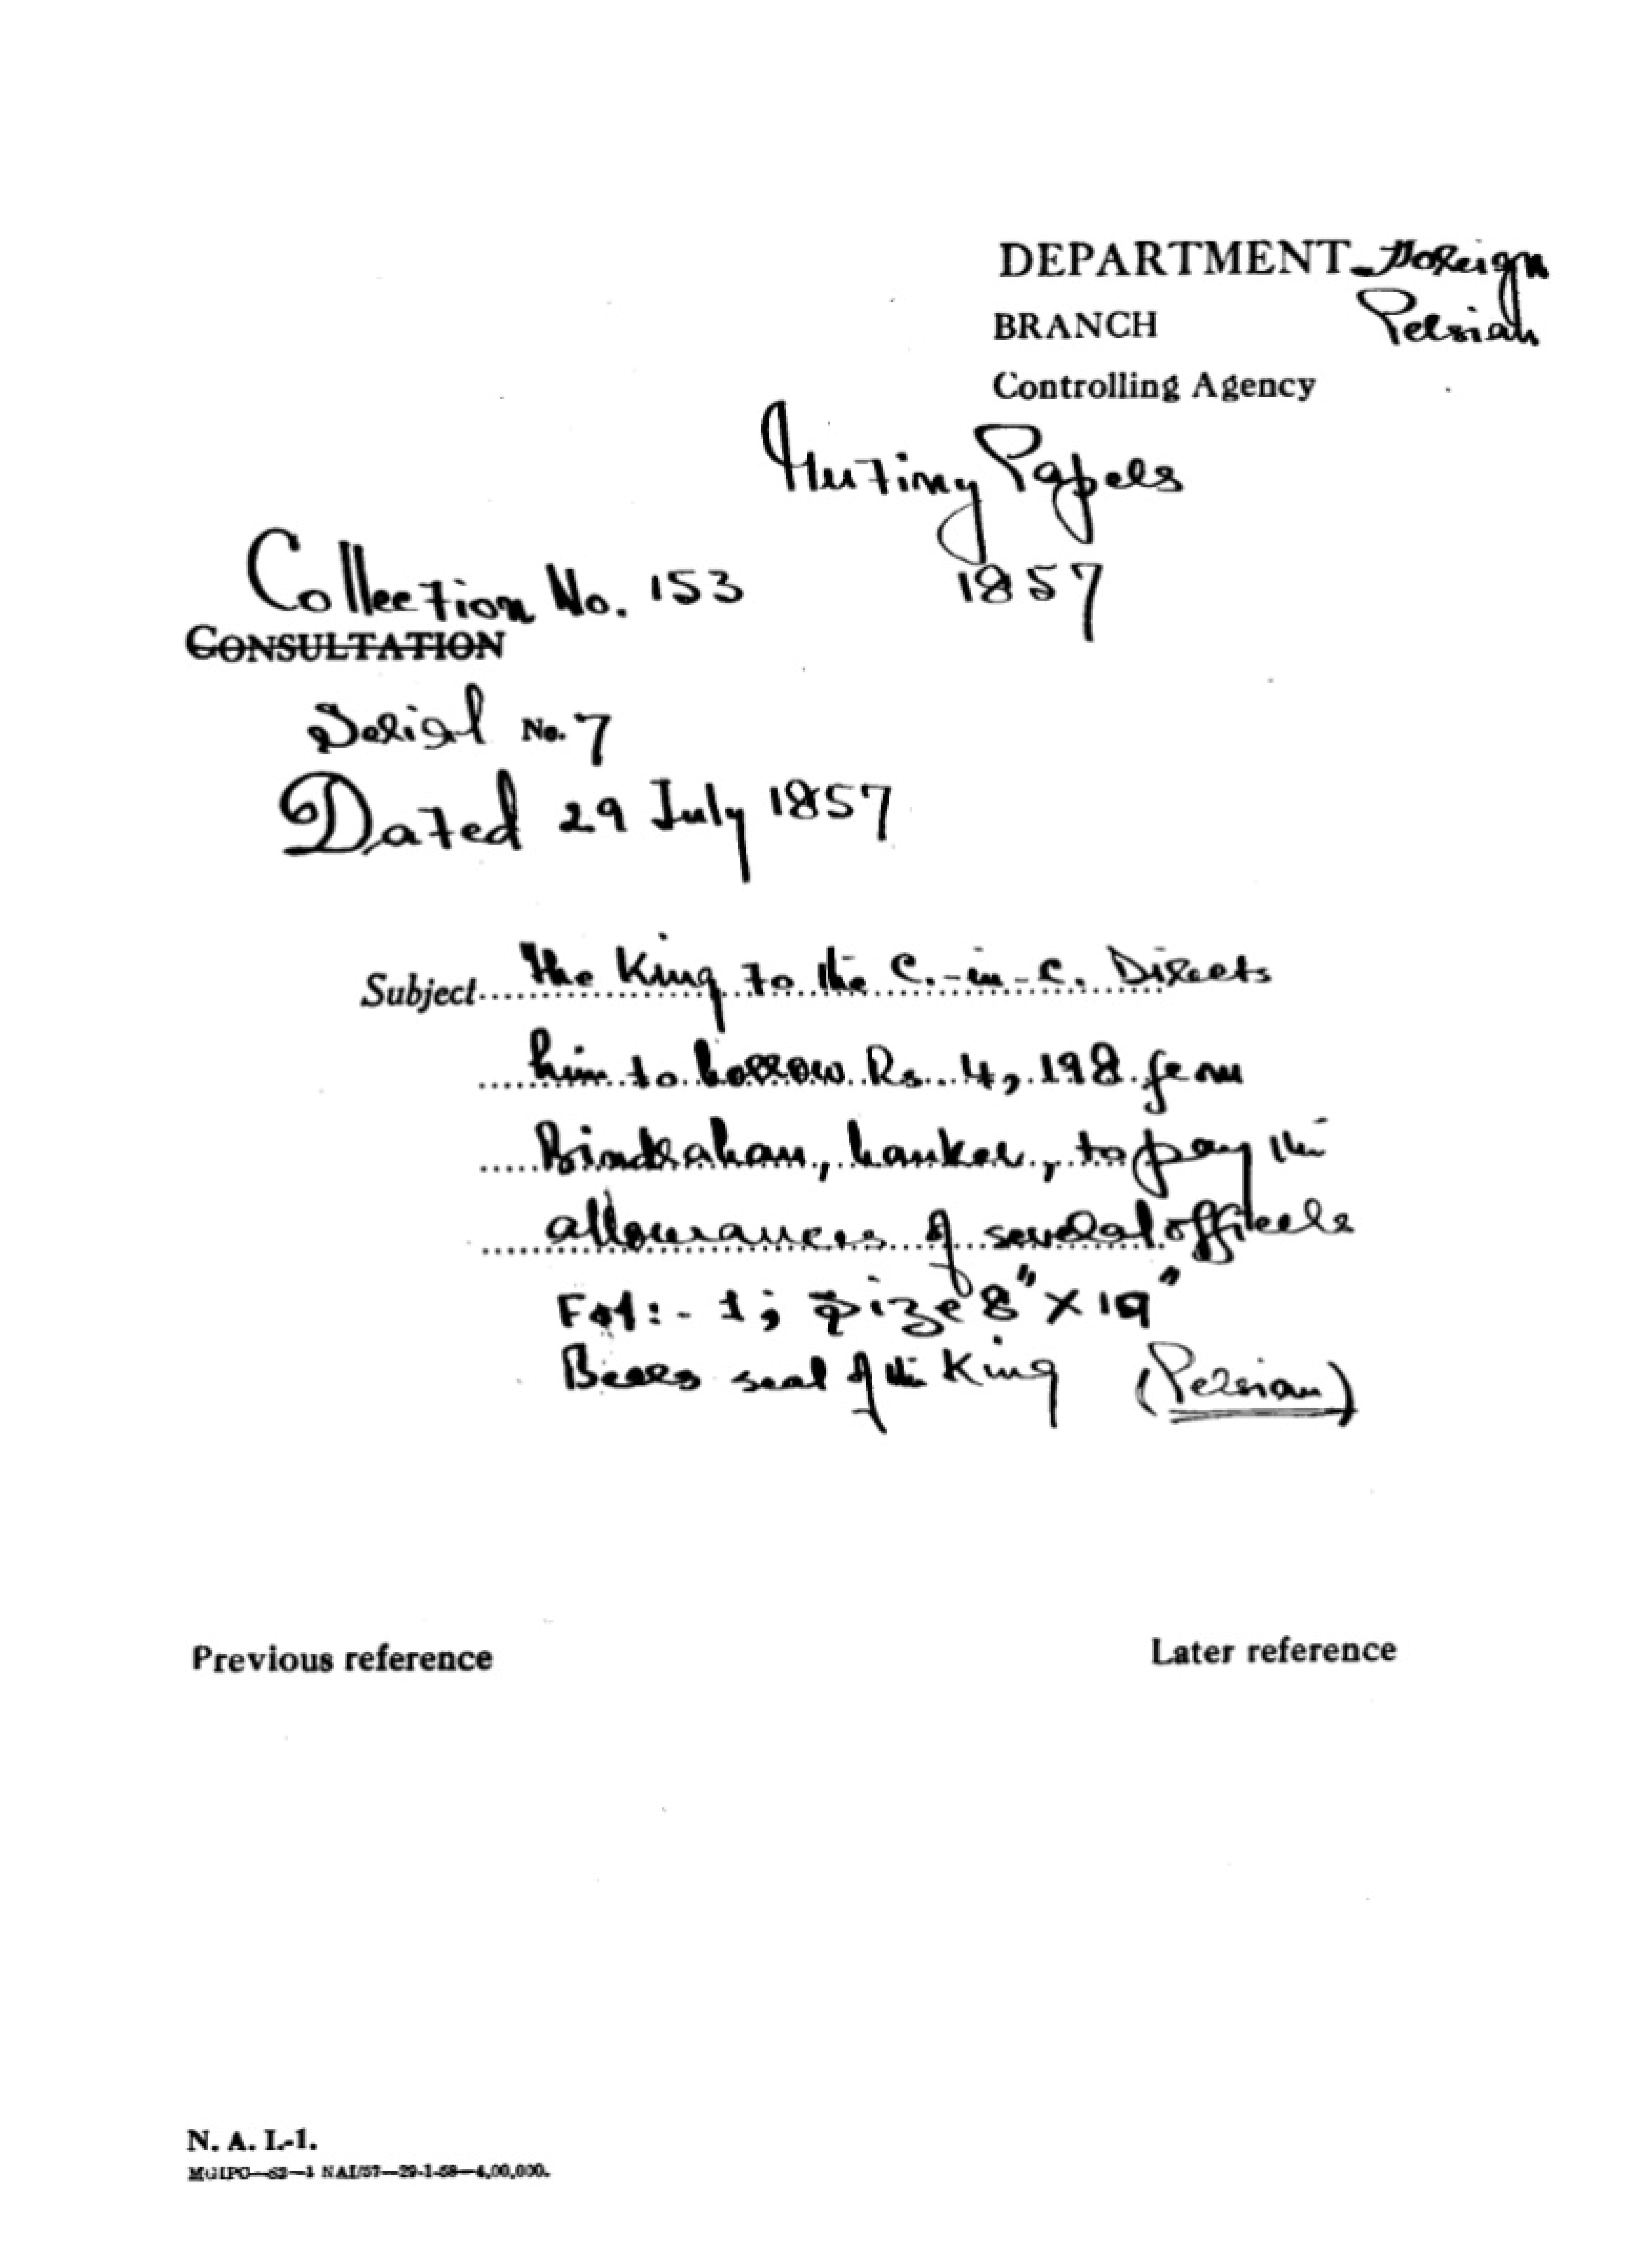 DEPARTMENT Foreign
BRANCH Persian
Controlling Agency
Mutiny Papers
Collection No. 153 1857
CONSULTATION
Serial No. 7
Dated 29 July 1857
Subject The King to the C.-in-C. Directs
him to borrow Rs. 4,198 from
Bindraban, banker, to pay the
allowances of several officers
Fol:- 1; Size 8" X 19"
Bears seal of the King (Persian)
Previous reference Later reference
N. A. I.-1.
MGIPC—S2—1 NAI/57—29-1-58—4,00,000.